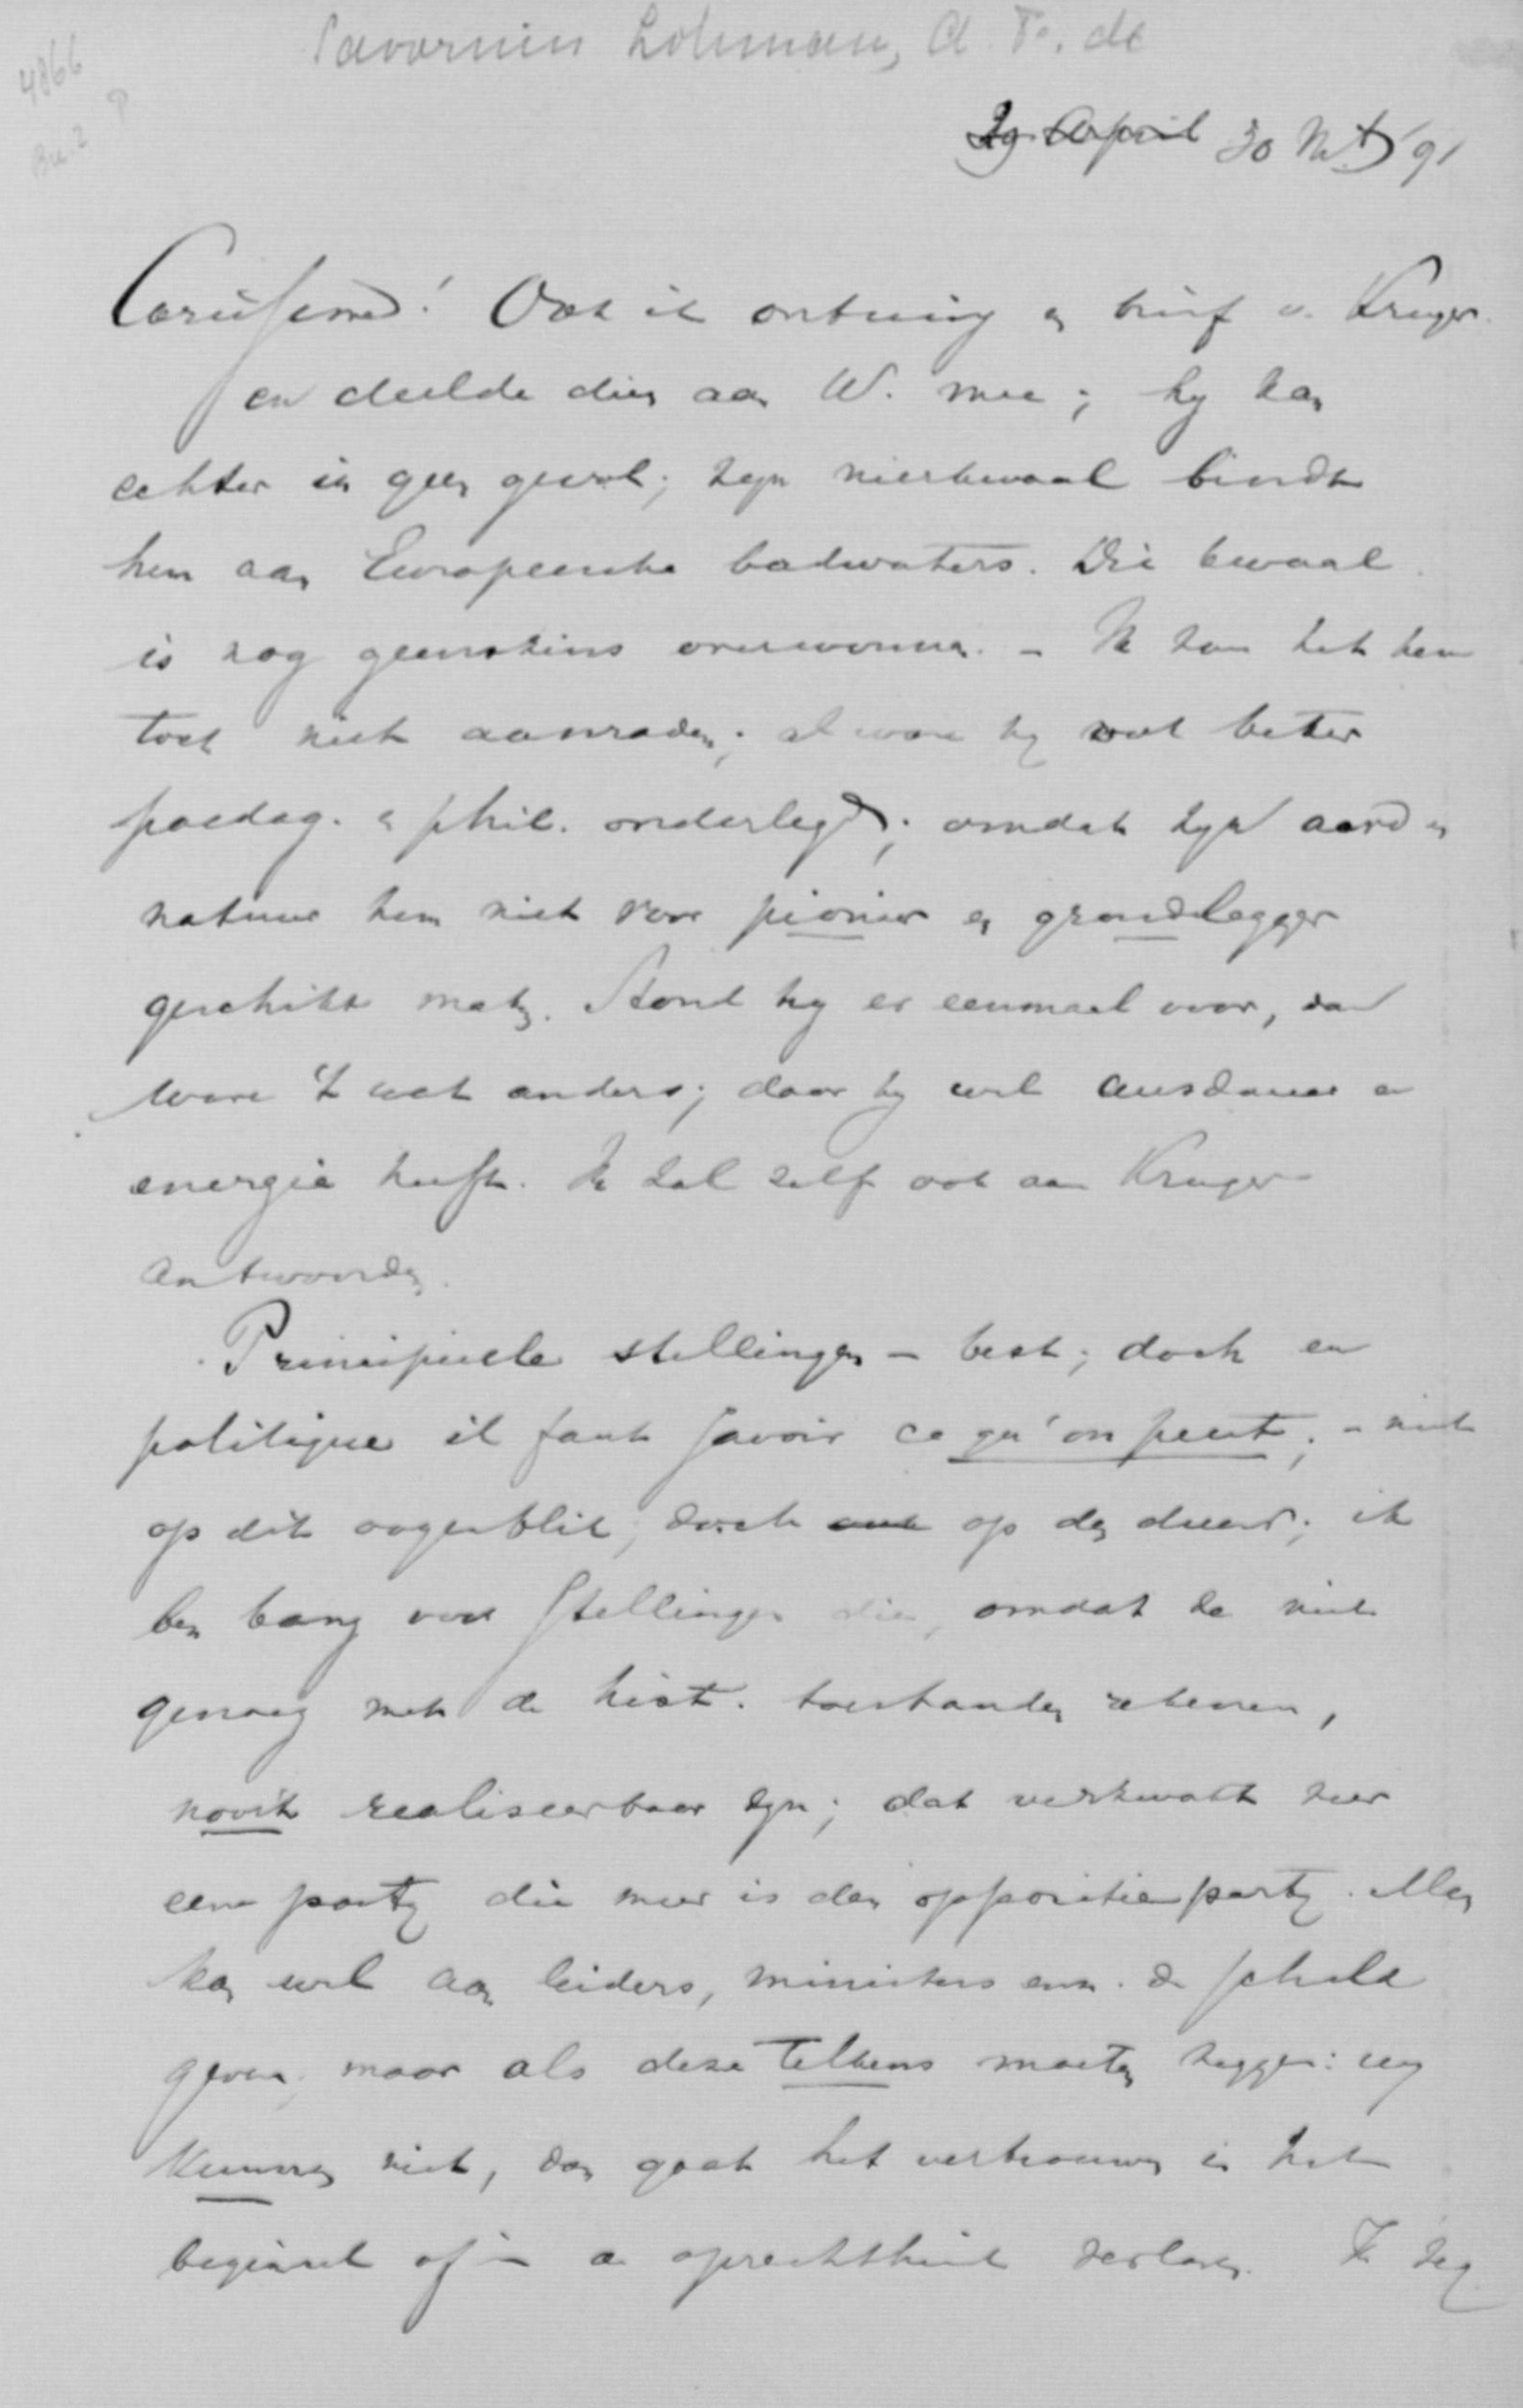 Savornin Lohman, A. F. de
4866
Bu. 2 P
29 April 30 Mrt '91
Carissime! Ook ik ontving en brief v. Kruger
en deelde dien aan W. mee; hy kan
echter in geen geval; zyn nierkwaal bindt
hem aan Europeesche badwaters. Die kwaal
is nog geenszins overwonnen. – Ik kon het hem
toch niet aanraden; al ware hy wat beter
paedag. en phil. onderlegd; omdat zyn aard en
natuur hem niet voor pionier en grondlegger
geschikt maken. Stond hy er eenmaal voor, dan
ware 't wat anders; daar hy wel ausdauer en
energie heeft. Ik zal zelf ook aan Kruger
antwoorden.
Principieele stellingen – best; doch en
politique il faut savoir ce qu'on peut; – niet
op dit oogenblik, doch op den duur; ik
ben bang voor stellingen die, omdat ze niet
genoeg met de hist. toestanden rekenen,
nooit realiseerbaar zyn; dat verzwakt zeer
eene party die meer is dan oppositieparty. Men
kan wel aan leiders, ministers enz. de schuld
geven, maar als deze telkens moeten zeggen: wy
kunnen niet, dan gaat het vertrouwen in het
beginsel of in de oprechtheid verloren. Ik zeg